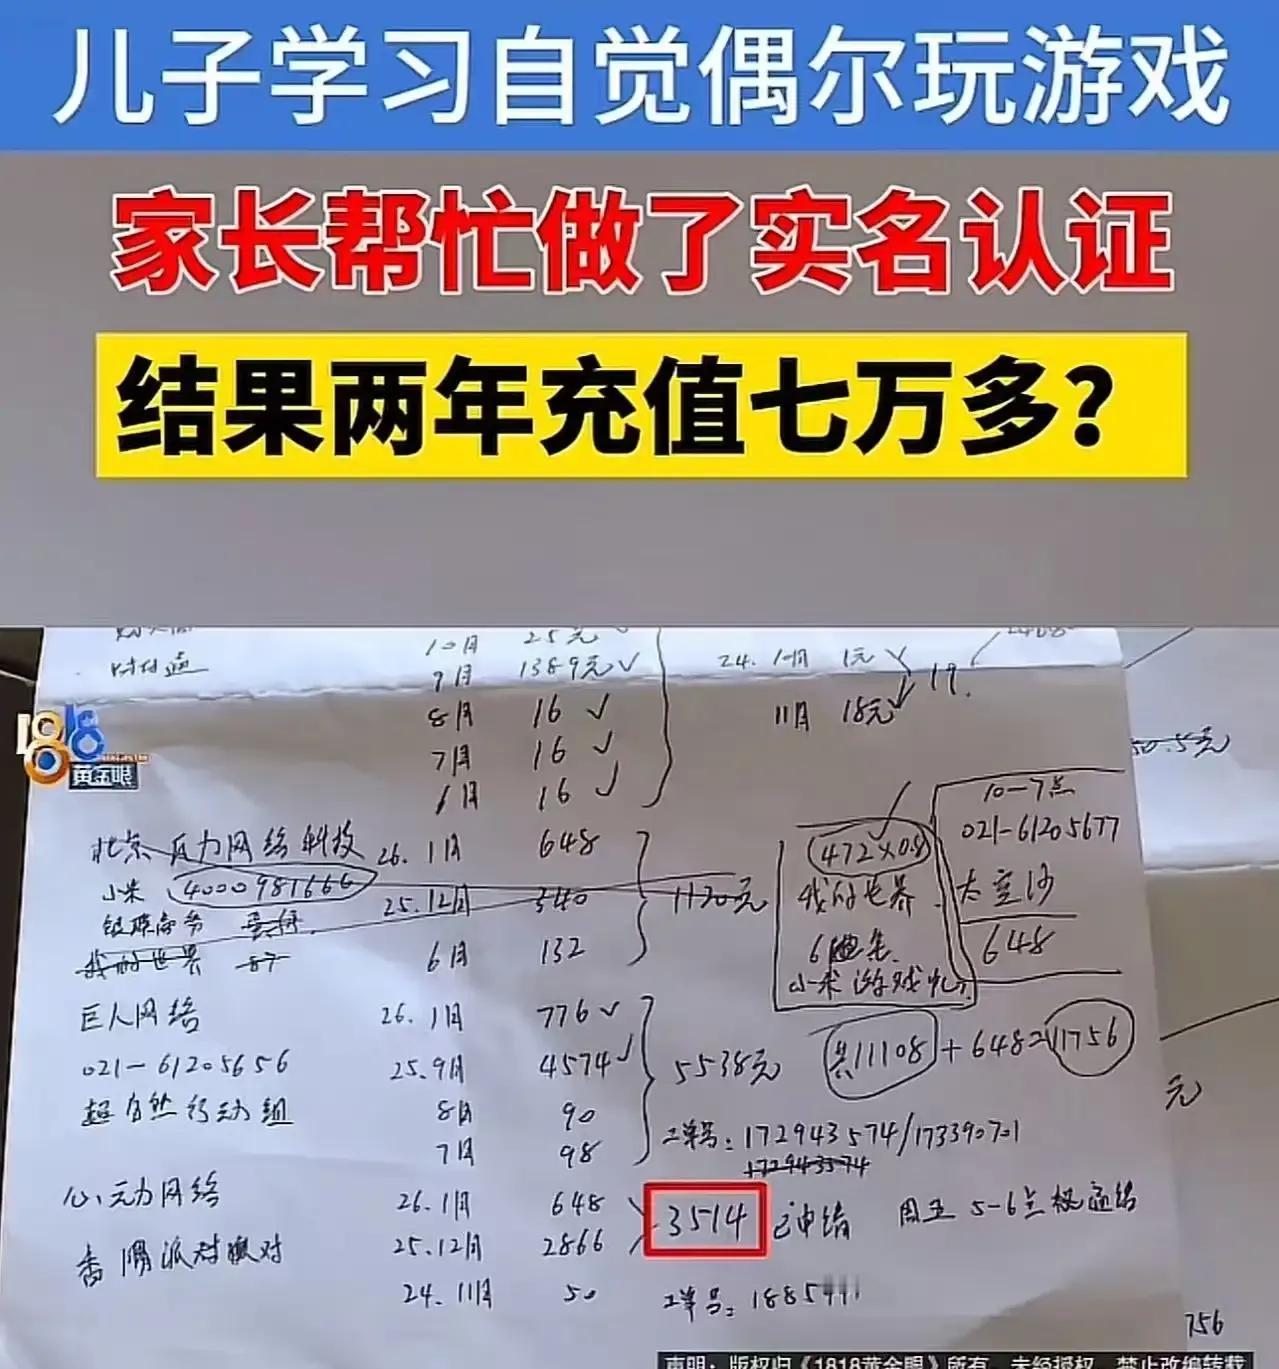 儿子学习自觉偶尔玩游戏
家长帮忙做了实名认证
结果两年充值七万多？
10月 25元
9月 1389元 24. 10月 1元
8月 16 11月 18元 19.
7月 16
6月 16
50.5元
1818
黄金眼
北京瓦力网络科技 26. 1月 648
小米 4000981666 25.12月 340 1120元
6月 132
我的世界 87
472×0.8
我的世界
小米游戏
10-7点
021-61205677
太空沙
648
巨人网络 26. 1月 776
021-61205656 25.9月 4574 5538元
共11108+648=11756
超自然行动组 8月 90
7月 98
工单号：172943574/173390701
172943574
心动网络 26.1月 648 3514 已申请 周五 5-6点
香肠派对 25.12月 2866
24. 11月 50
工单号：1885
元
756
声明：版权归《1818黄金眼》所有，未经授权，禁止改编转载